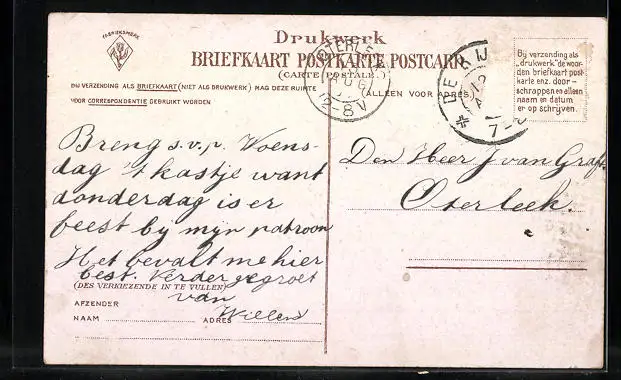 FABRIEKSMERK
Drukwerk
BRIEFKAART POSTKARTE POSTCARD
(CARTE POSTALE.)
BIJ VERZENDING ALS BRIEFKAART (NIET ALS DRUKWERK) MAG DEZE RUIMTE
VOOR CORRESPONDENTIE GEBRUIKT WORDEN
(ALLEEN VOOR ADRES)
Bij verzending als
„drukwerk" de woor-
den briefkaart post-
karte enz. door-
schrappen en alleen
naam en datum
er op schrijven.
OTERLE
12-8V
DE RIJ
7-8
Breng s.v.p. Woens-
dag 't kastje want
donderdag is er
feest bij mijn patroon
Het bevalt me hier
best. Verder gegroet
van
Willem
(DES VERKIEZENDE IN TE VULLEN)
AFZENDER
NAAM ADRES
Den Heer J van Graft
Oterleek.